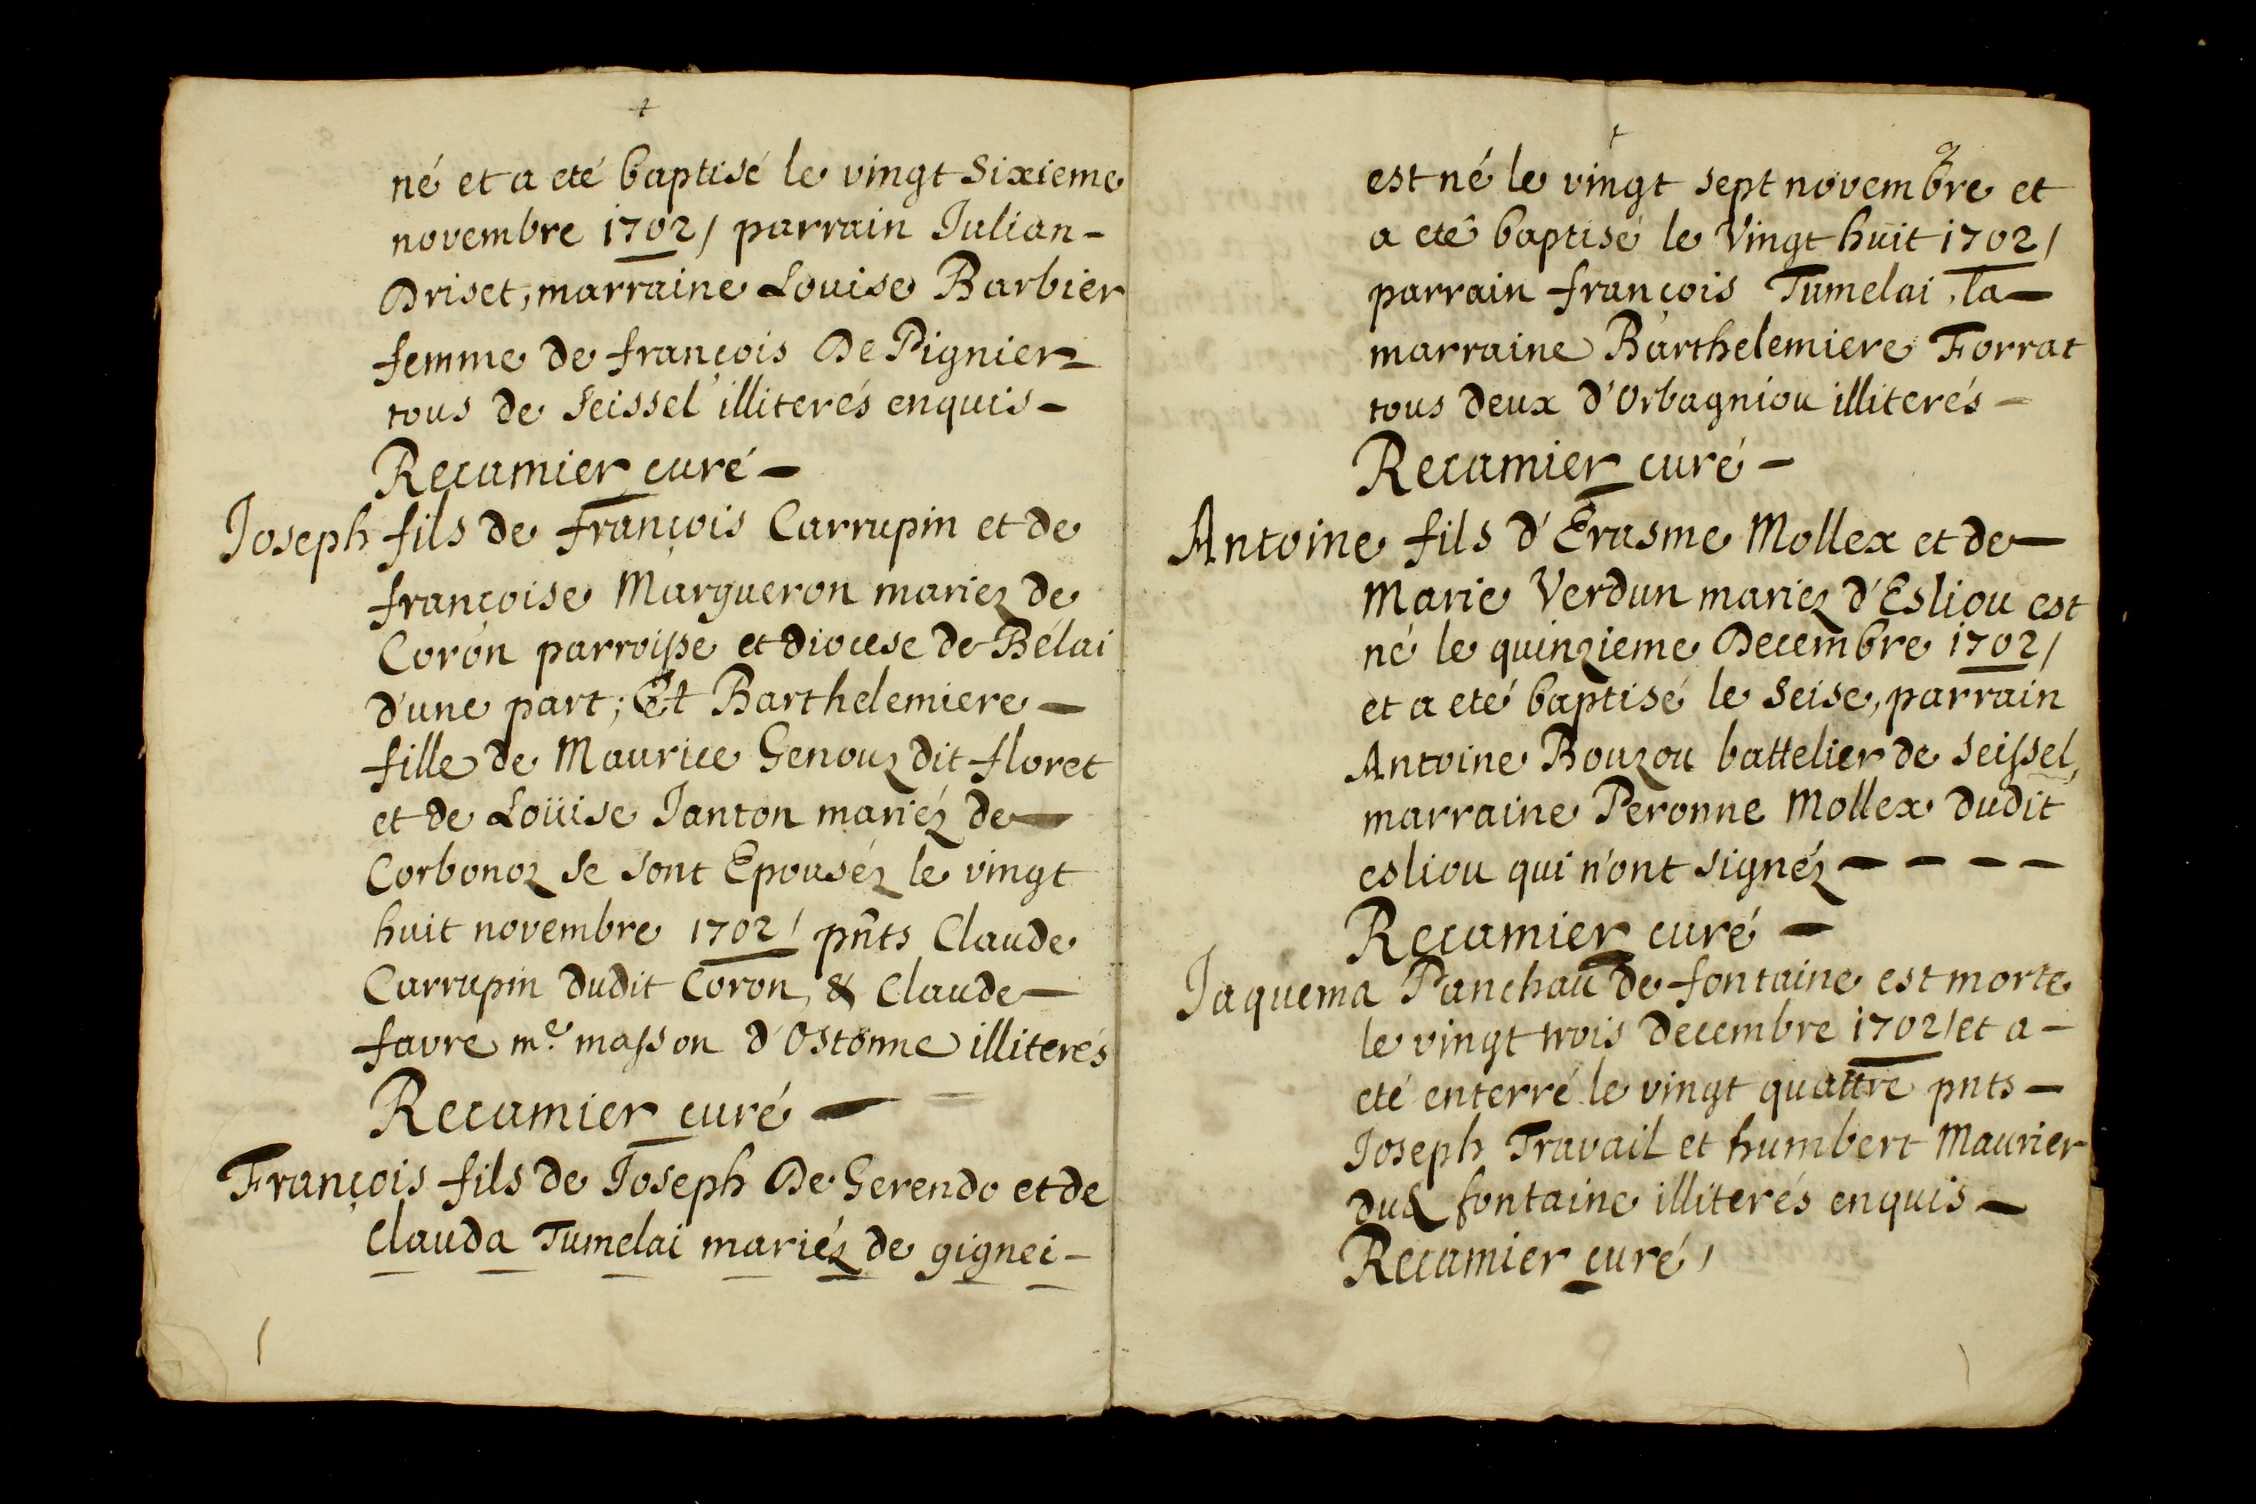 né et a eté baptisé le vingt sixieme
novembre 1702/ parrain Julian-
Driset, marraine Louise Barbier
femme de françois De Pignier-
tous de Seissel illiterés enquis-
Recamier curé-
Joseph fils de françois Carrupin et de
françoise Margueron mariez de
Coron parroisse et diocese de Bélai
d'une part; Et Barthelemiere-
fille de Maurice Genouz dit floret
et de Loüise Janton mariéz de-
Corbonoz se sont Epouséz le vingt
huit novembre 1702/ pñts Claude
Carrupin dudit Coron, & Claude-
favre me masson d'Ostonne illiterés
Recamier curé-
François fils de Joseph De Gerendo et de
Clauda Tumelai mariéz de gignei-
est né le vingt sept novembre et
a eté baptisé le Vingt huit 1702/
parrain françois Tumelai, la-
marraine Barthelemiere Forrat
tous deux d'Orbagniou illiterés-
Recamier curé-
Antoine fils d'Erasme Mollex et de-
Marie Verdun mariez d'Esliou est
né le quinzieme Decembre 1702/
et a eté baptisé le seise, parrain
Antoine Bouzou battelier de seissel,
marraine Peronne Mollex dudit
esliou qui n'ont signéz - - - -
Recamier curé-
Jaquema Panchau de fontaine est morte
le vingt trois decembre 1702/ et a-
eté enterré le vingt quattre pnts-
Joseph Travail et humbert Maurier
dud fontaine illiterés enquis-
Recamier curé/